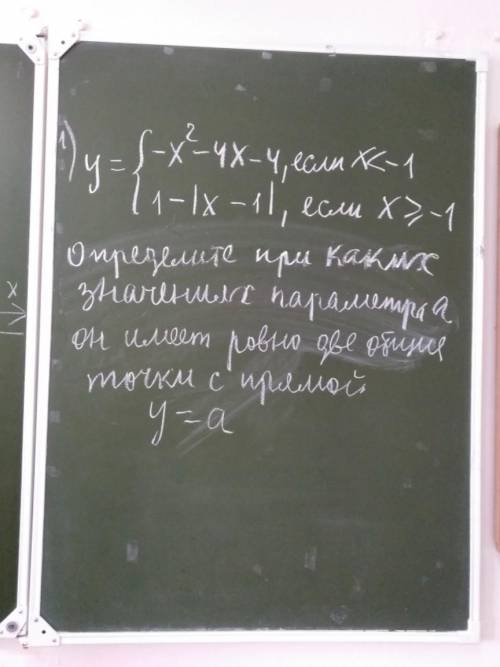 1) y = { -x² - 4x - 4, если x < -1
1 - |x - 1|, если x ⩾ -1
Определите при каких
значениях параметра a
он имеет ровно две общие
точки с прямой
y = a
x